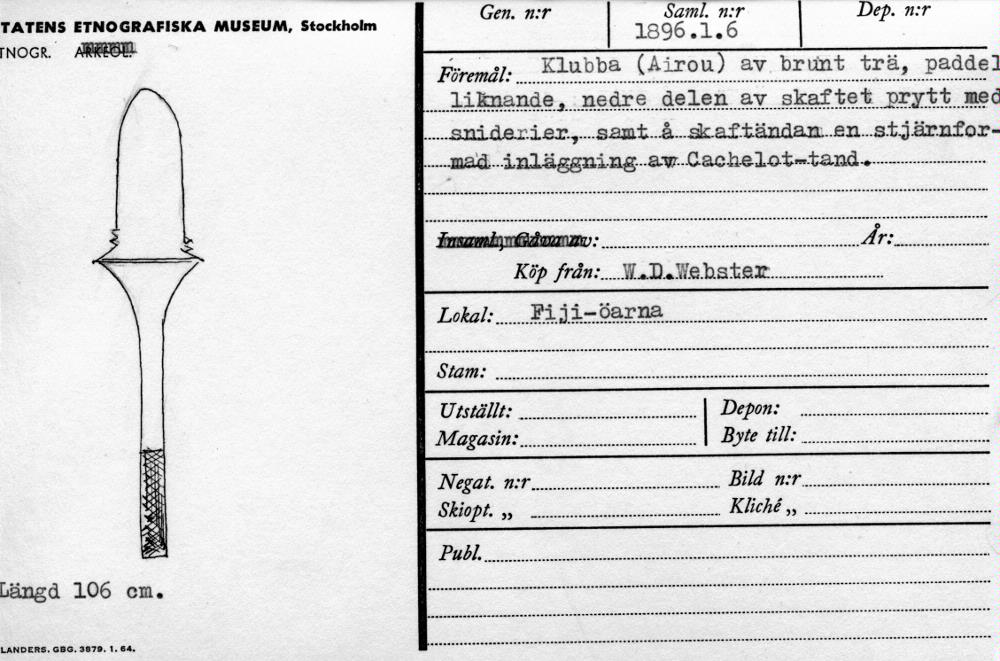 TATENS ETNOGRAFISKA MUSEUM, Stockholm
TNOGR. ARKEOL.
Längd 106 cm.
LANDERS. GBG. 3879. 1. 64.
Gen. n:r Saml. n:r Dep. n:r
1896.1.6
Föremål: Klubba (Airou) av brunt trä, paddel
liknande, nedre delen av skaftet prytt med
sniderier, samt å skaftändan en stjärnfor-
mad inläggning av Cachelot-tand.
Insaml, Gåva av: År:
Köp från: W.D.Webster
Lokal: Fiji-öarna
Stam:
Utställt: Depon:
Magasin: Byte till:
Negat. n:r Bild n:r
Skiopt. „ Kliché „
Publ.